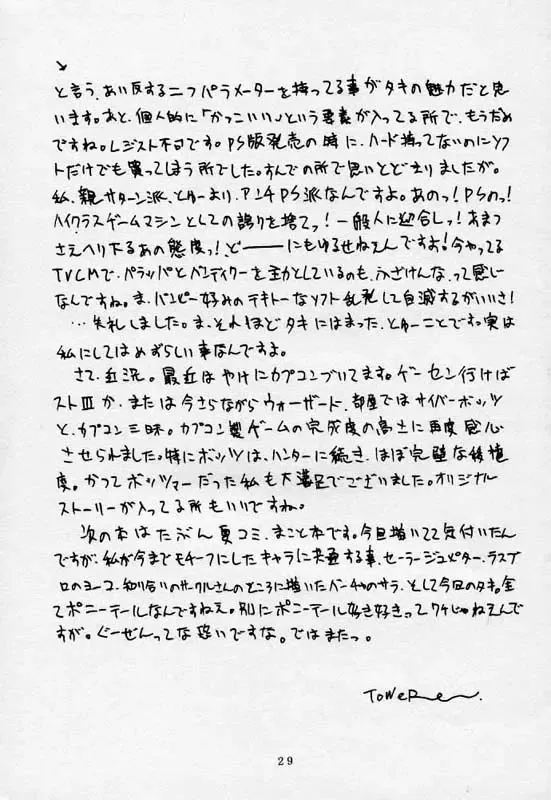 と言う、あい反する二つパラメーターを持ってる事がタキの魅力だと思
います。あと、個人的に「かっこいい」という要素が入ってる所で、もうだめ
ですね。レジスト不可です。PS版発売の時に、ハード持ってないのにソフ
トだけでも買ってしまう所でした。すんでの所で思いとどまりましたが。
私、親サターン派、とゆーより、アンチPS派なんですよ。あのっ!PSのっ!
ハイクラスゲームマシンとしての誇りを捨てっ!一般人に迎合しっ!あまつ
さえへり下るあの態度っ!ど───にもゆるせねえんですよ!今やってる
TVCMで、パラッパとバンディクーを主力としているのも、ふざけんな、って感じ
なんですね。ま、パンピー好みのテキトーなソフト乱発して自滅するがいいさ!
…失礼しました。ま、それほどタキにはまった、とゆーことです。実は
私にしてはめずらしい事なんですよ。
さて、近況。最近はやけにカプコンづいてます。ゲーセン行けば
ストⅢか、または今さらながらウォーザード、部屋ではサイバーボッツ
と、カプコン三昧。カプコン製ゲームの完成度の高さに再度感心
させられました。特にボッツは、ハンターに続き、ほぼ完璧な移植
度。かつてボッツマーだった私も大満足でございました。オリジナル
ストーリーが入ってる所もいいですね。
次の本はたぶん夏コミ、まこと本です。今回描いてて気付いたん
ですが、私が今までモチーフにしたキャラに共通する事、セーラージュピター、ラスブ
ロのヨーコ、知り合いのサークルさんのところに描いたバーチャのサラ、そして今回のタキ。全
てポニーテールなんですねえ。別にポニーテール好き好きってワケじゃねえんで
すが。ぐーぜんってな恐いですな。ではまたっ。
ToWeR
29